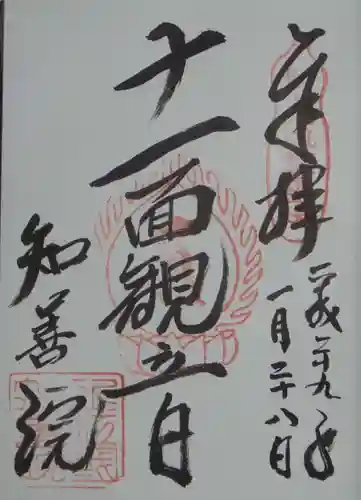 奉拝
平成二十九年
一月二十八日
十一面観音
知善院